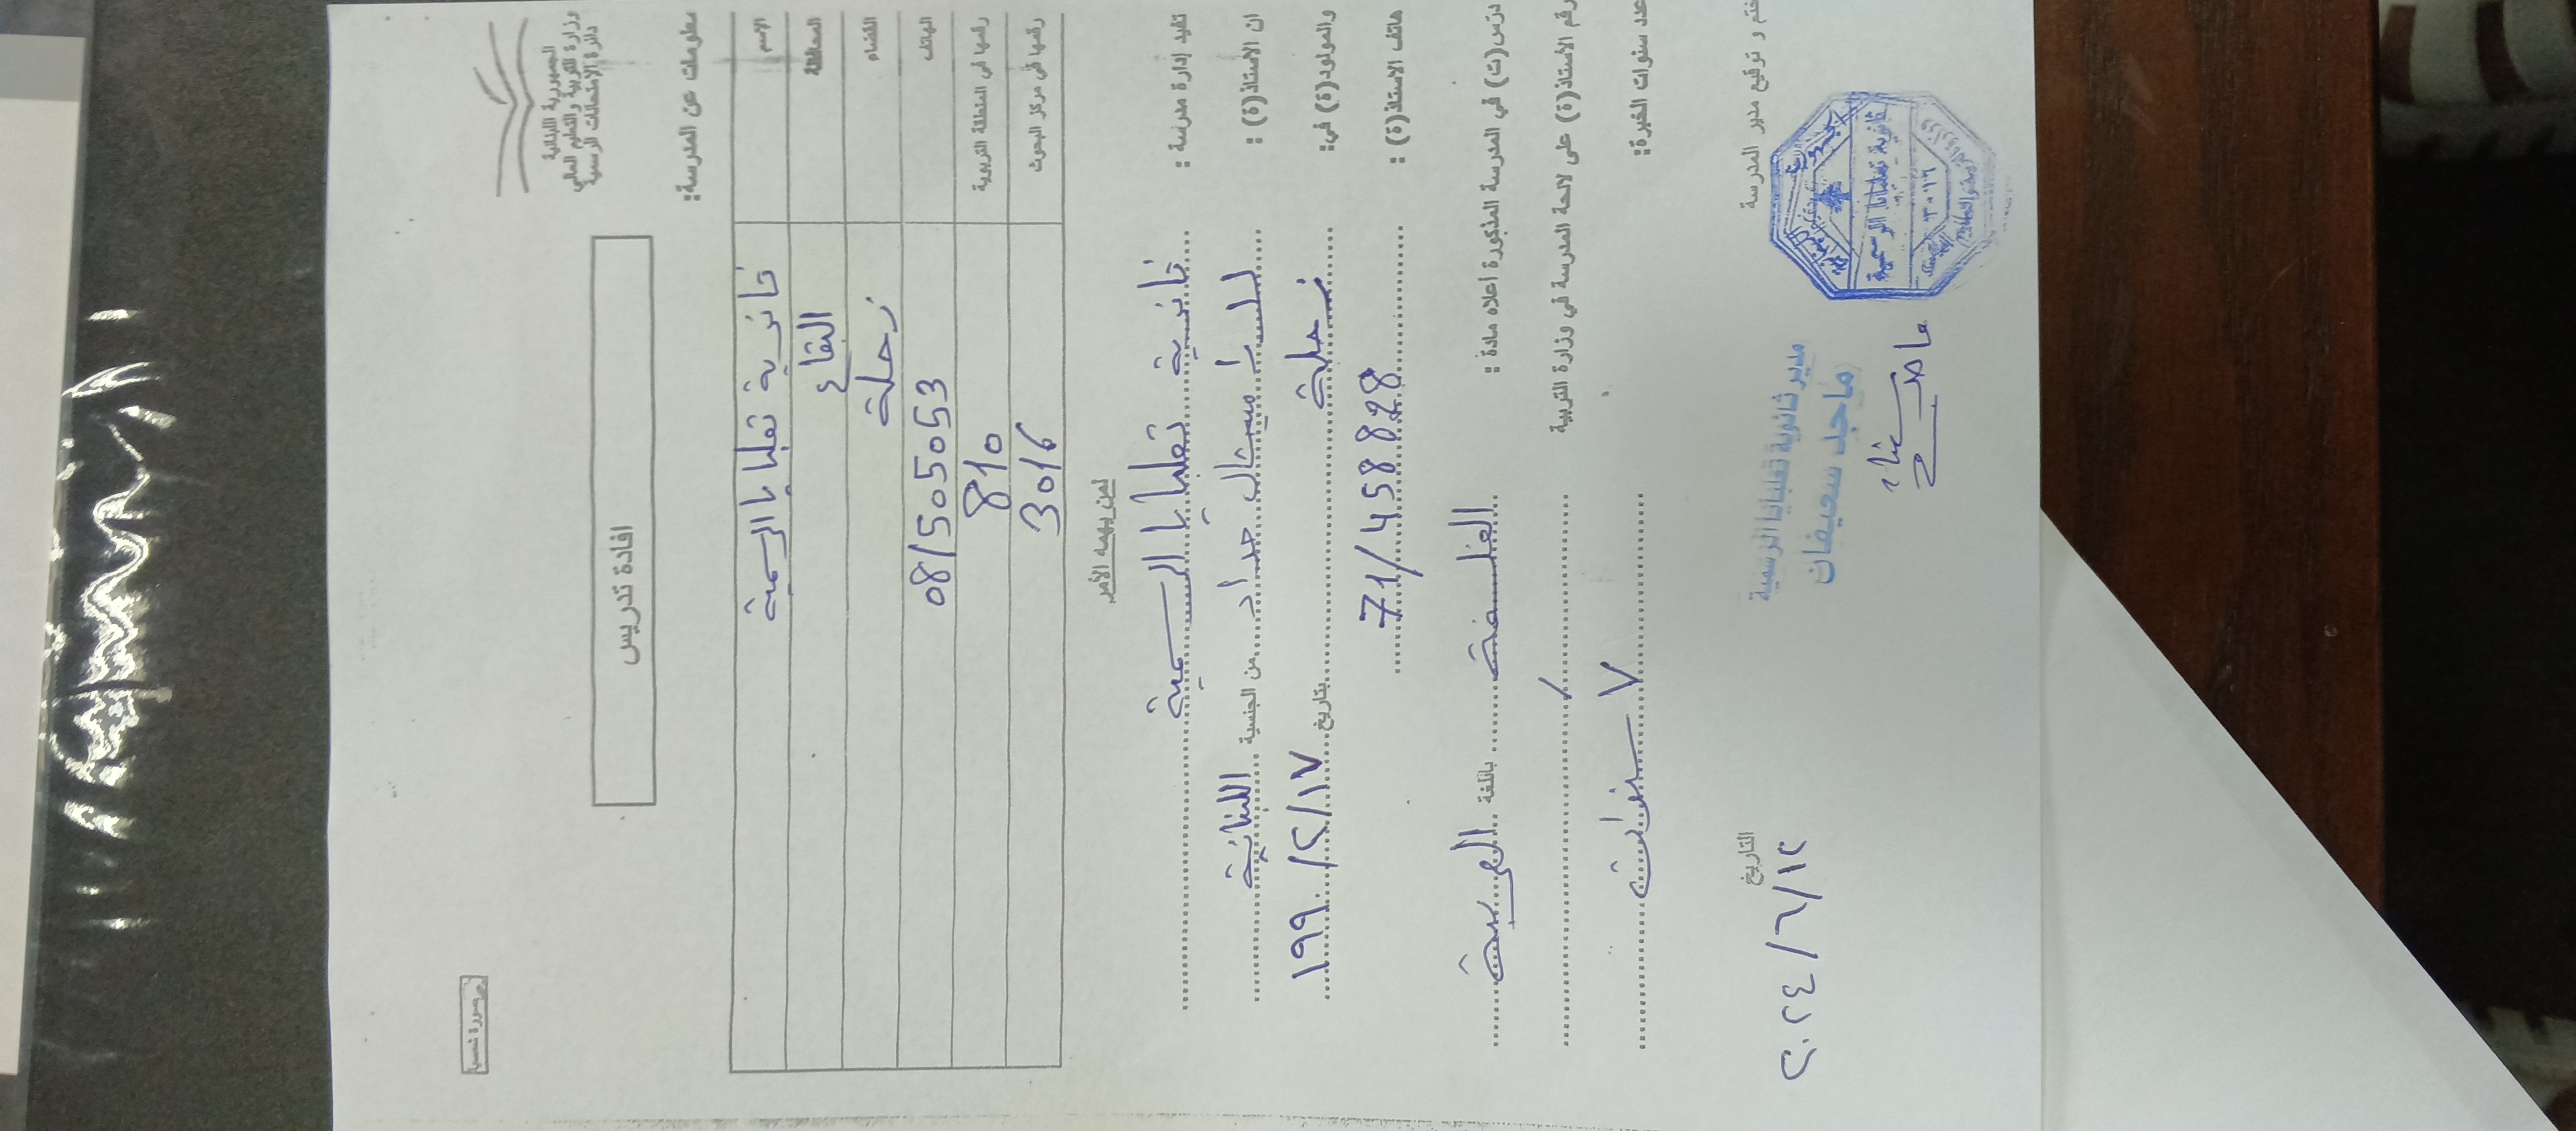 الجمهورية اللبنانية
وزارة التربية والتعليم العالي
دائرة الامتحانات الرسمية
صورة شمسية
افادة تدريس
معلومات عن المدرسة:
الإسم ثانوية تعلبايا الرسمية
المحافظة البقاع
القضاء زحلة
الهاتف 08/505053
رقمها في المنطقة التربوية 810
رقمها في مركز البحوث 3016
لمن يهمه الأمر
تفيد إدارة مدرسة : ثانوية تعلبايا الرسمية
ان الاستاذ(ة) : حداد من الجنسية اللبنانية
والمولود(ة) في: زحلة بتاريخ ١٩٩٠/٢/١٧
هاتف الاستاذ(ة) : 71/458828
درّس(ت) في المدرسة المذكورة اعلاه مادة : الفلسفة باللغة العربية
رقم الأستاذ(ة) على لائحة المدرسة في وزارة التربية /
عدد سنوات الخبرة: ٧ سنوات
ختم و توقيع مدير المدرسة
التاريخ
٢٠٢٤/٦/١٢
ثانوية تعلبايا الرسمية
٣٠١٦
مدير ثانوية تعلبايا الرسمية
ماجد سعيفان